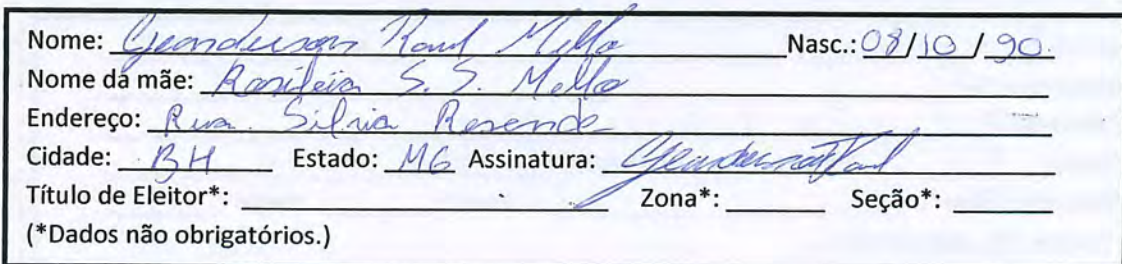 Nome: Geanderson Raul Mello Nasc.: 08/10/90
Nome da mãe: Rosiléia S. S. Mello
Endereço: Rua Silvia Resende
Cidade: BH Estado: MG Assinatura: Geanderson Raul
Título de Eleitor*: Zona*: Seção*:
(*Dados não obrigatórios.)